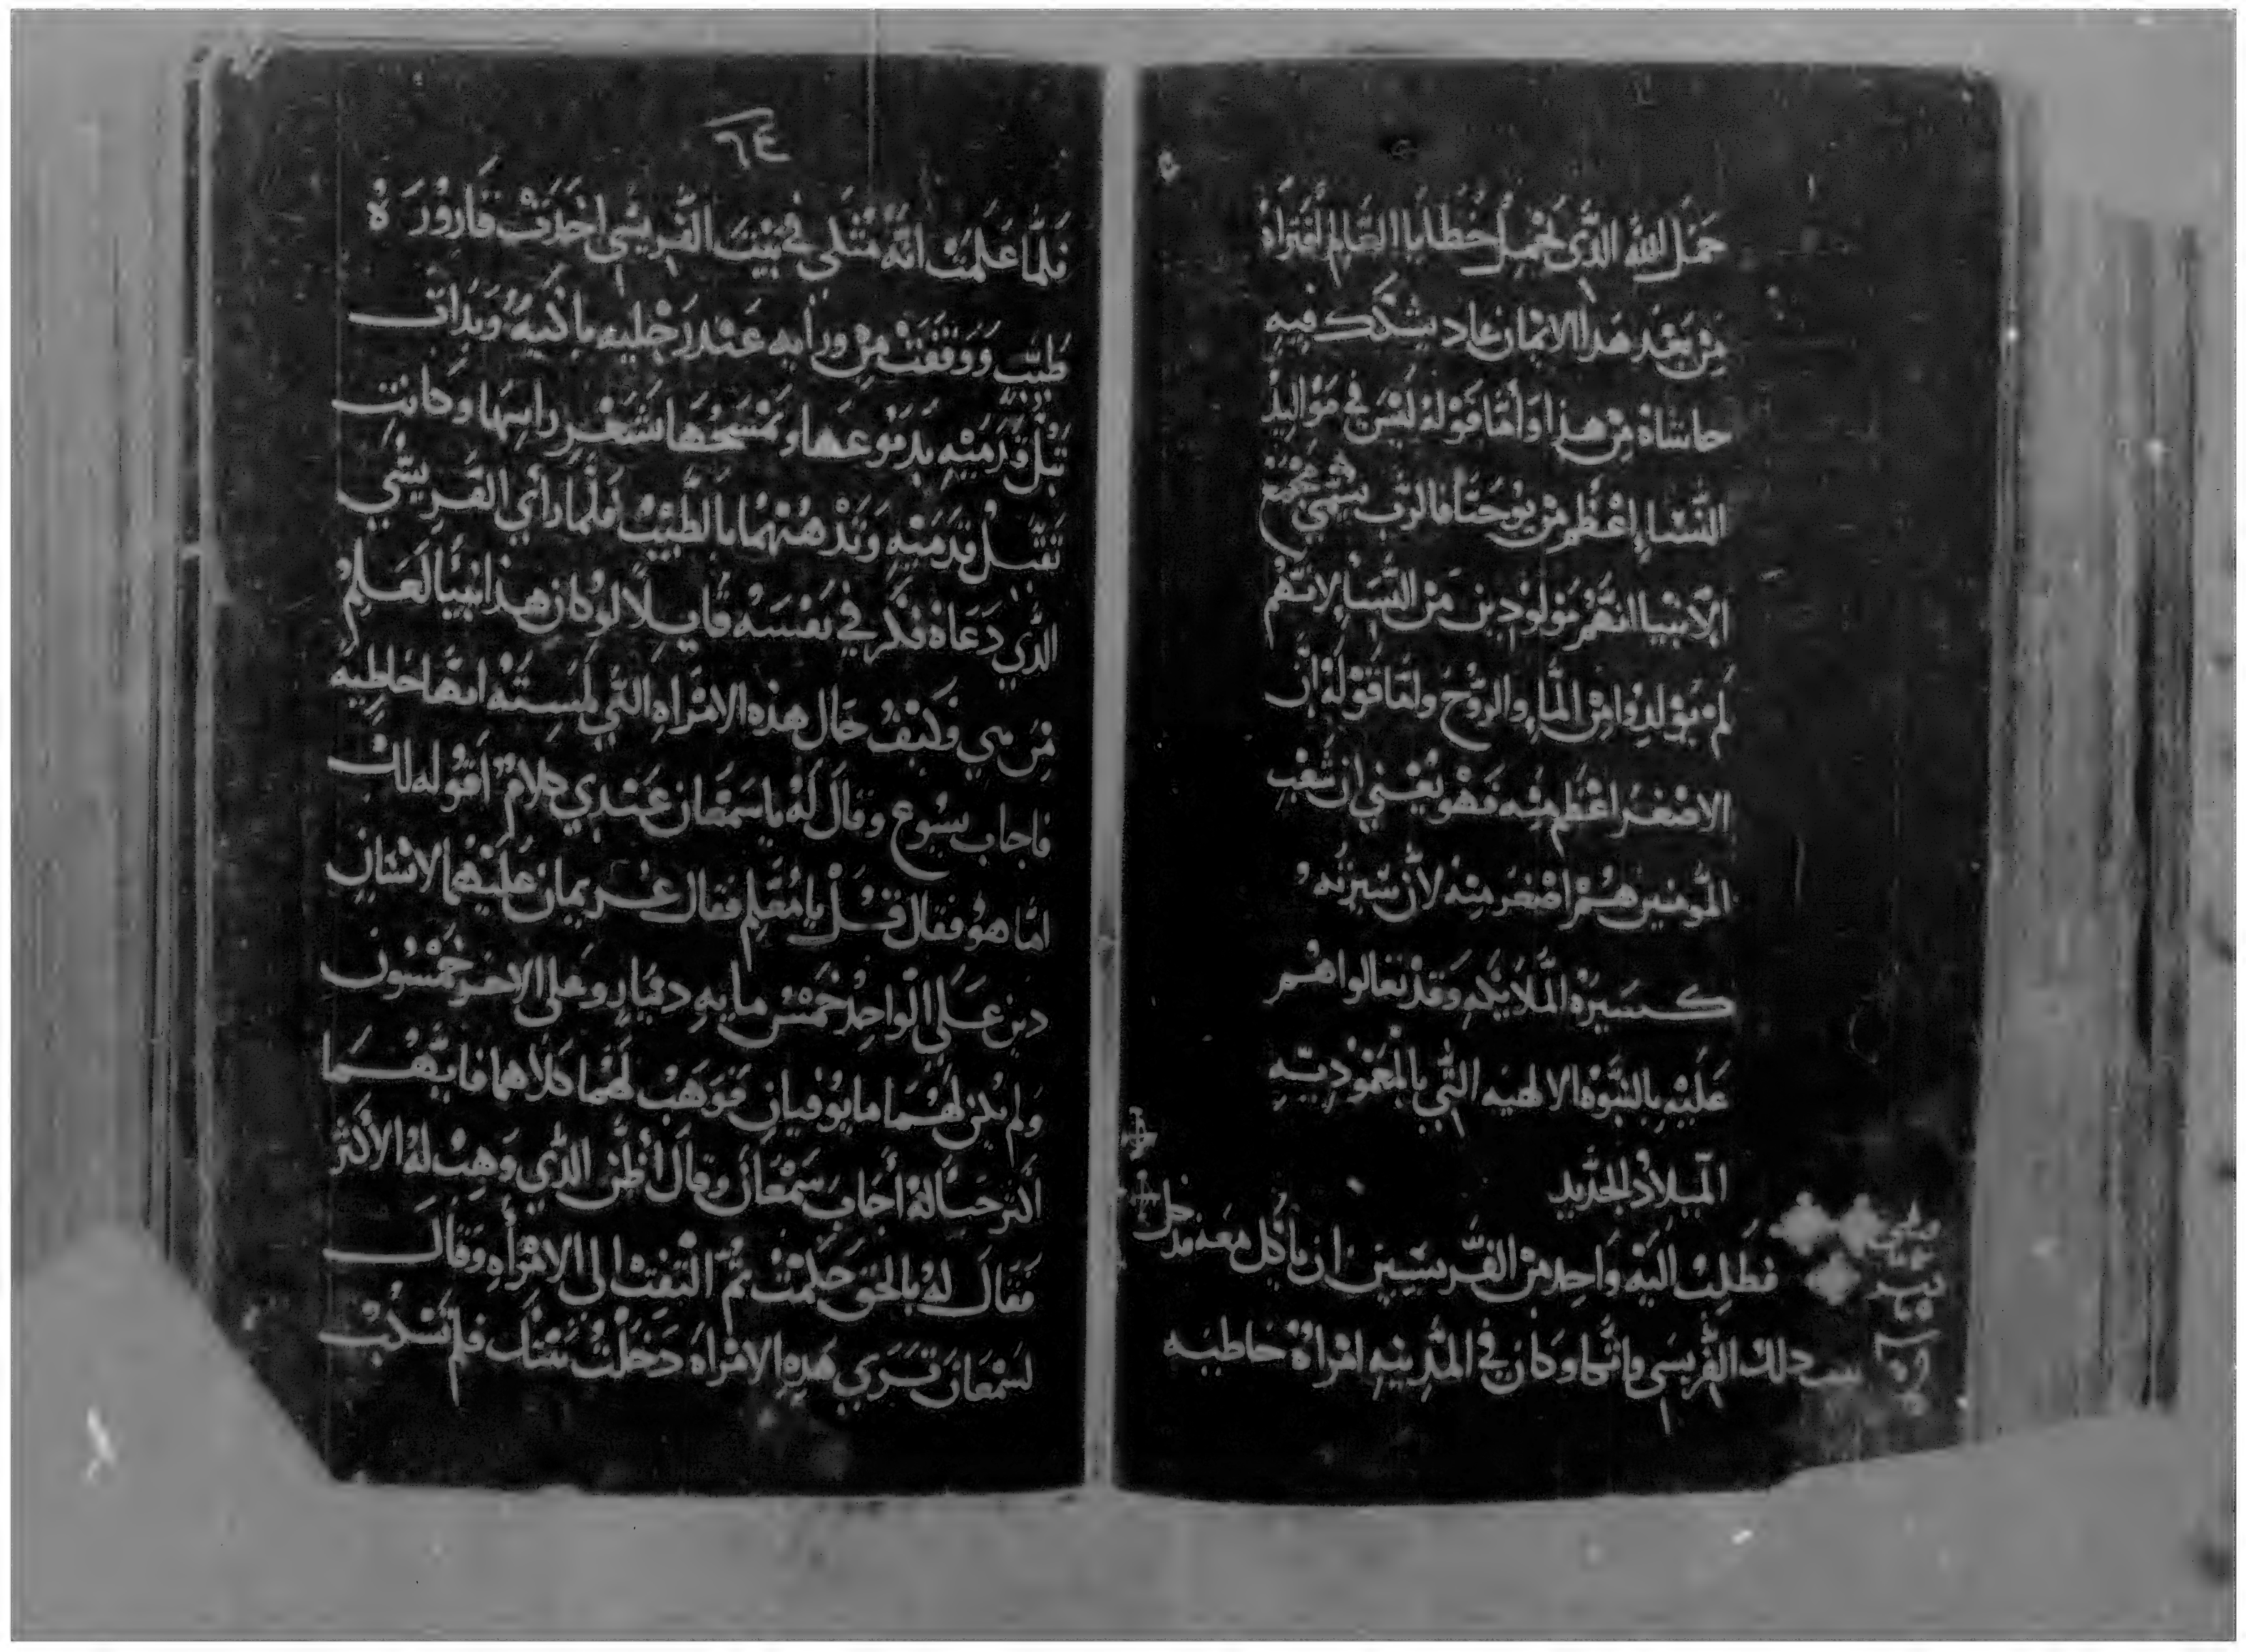 حمل الله الذي يحمل خطايا العالم افتراه
من بعد هدا الايمان عاد يشكك فيه
حاشاه من هذا وأما قوله ليس في مواليد
النسا اعظم من يوحنا فالرب يسمي جميع
الانبيا انهم مولودين من النسا لانهم
لم يولدوا من الما والروح واما قوله ان
الاصغر اعظم منه فهو يعني ان شعب
المومنين هم اصغر منه لأن سيرته
كسيرة الملايكه وقد تعالوا هم
عليه بالبنوة الالهيه التي بالمعموديه
الميلاد الجديد
فطلب اليه واحد من الفريسيين ان ياكل معه فدخل
بيت دلك الفريسي واتكا وكان في المدينه امراة خاطيه
٦٤
فلما علمت انه متكي في بيت الفريسي اخذت قارورة
طيب ووقفت من ورايه عند رجليه باكيه وبدات
تبل قدميه بدموعها وتمسحها بشعر راسها وكانت
تقبل قدميه وتدهنهما بالطيب فلما رأي الفريسي
الذي دعاه فكر في نفسه قايلا لو كان هذا نبيا لعلم
من هي وكيف حال هذه الامراه التي لمسته انها خاطيه
فاجاب يسوع وقال له يا سمعان عندي كلام اقوله لك
اما هو فقال قل يا معلم فقال غريمان عليهما لانسان
دين علي الواحد خمس مايه دينار وعلي الاخر خمسون
ولم يكن لهما ما يوفيان فوهب لهما كلاهما فايهما
اكثر حبا له أجاب سمعان وقال اظن الذي وهب له الأكثر
فقال له بالحق حكمت ثم التفت الى الامرأه وقال
لسمعان تري هده الامراه دخلت بيتك فلم تسكب